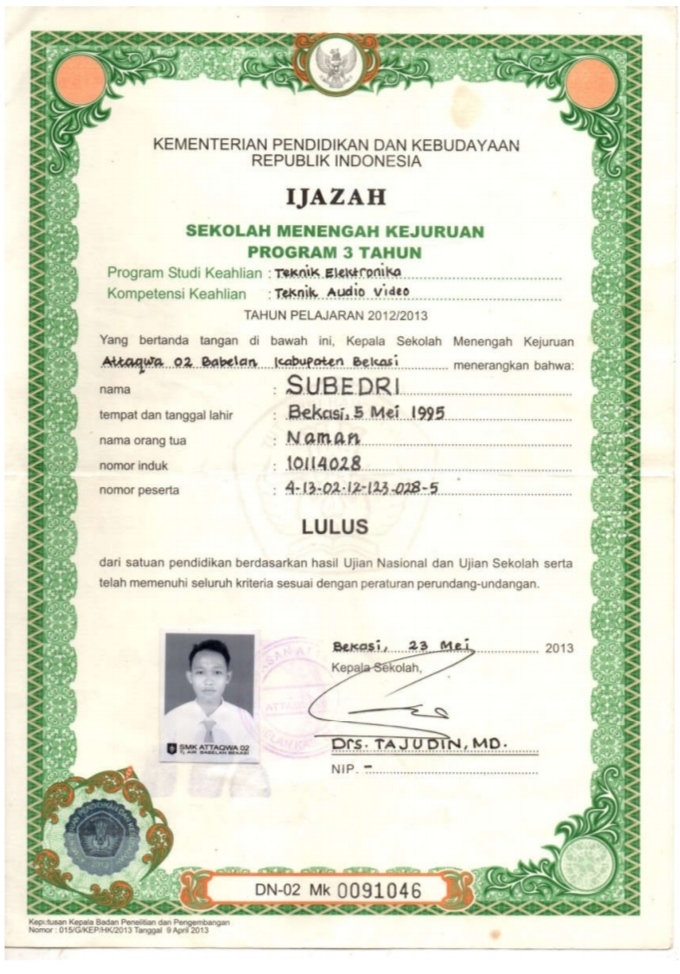 KEMENTERIAN PENDIDIKAN DAN KEBUDAYAAN
REPUBLIK INDONESIA
IJAZAH
SEKOLAH MENENGAH KEJURUAN
PROGRAM 3 TAHUN
Program Studi Keahlian : Teknik Elektronika
Kompetensi Keahlian : Teknik Audio Video
TAHUN PELAJARAN 2012/2013
Yang bertanda tangan di bawah ini, Kepala Sekolah Menengah Kejuruan
Attaqwa 02 Babelan Kabupaten Bekasi menerangkan bahwa:
nama : SUBEDRI
tempat dan tanggal lahir : Bekasi, 5 Mei 1995
nama orang tua : Naman
nomor induk : 10114028
nomor peserta : 4-13-02-12-123-028-5
LULUS
dari satuan pendidikan berdasarkan hasil Ujian Nasional dan Ujian Sekolah serta
telah memenuhi seluruh kriteria sesuai dengan peraturan perundang-undangan.
Bekasi, 23 Mei 2013
Kepala Sekolah,
SMK ATTAQWA 02
BABELAN BEKASI
Drs. TAJUDIN, MD.
NIP. -
DN-02 Mk 0091046
Keputusan Kepala Badan Penelitian dan Pengembangan
Nomor : 015/G/KEP/HK/2013 Tanggal 9 April 2013